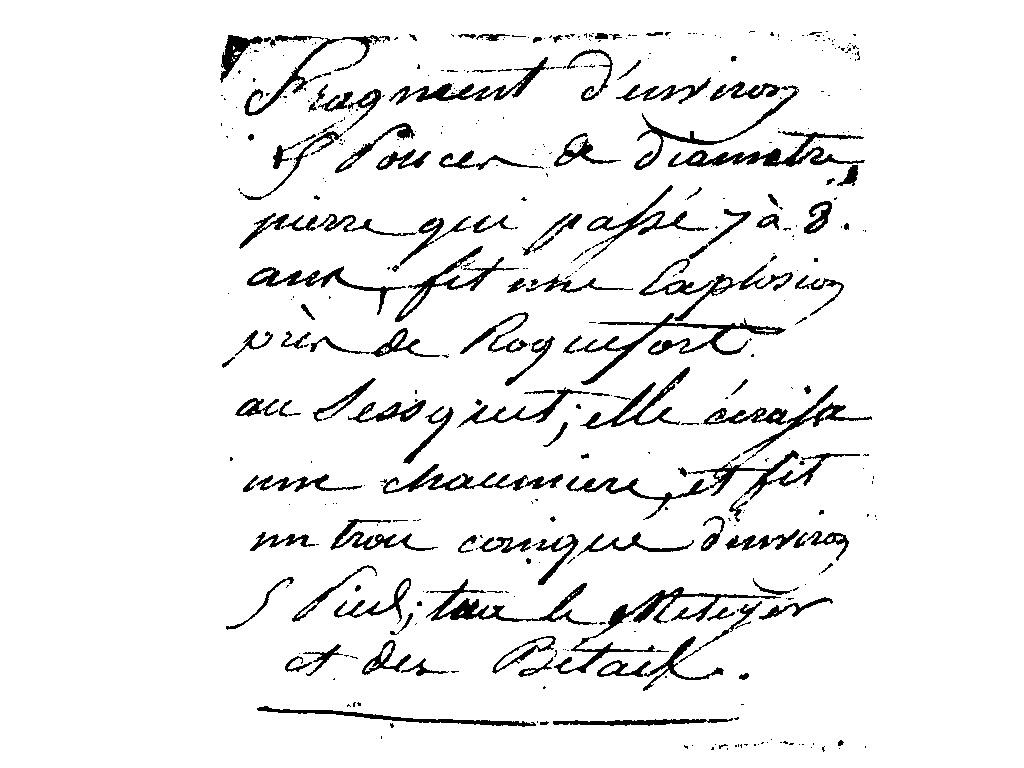 Fragment d'environ
15 Pouces de diametre
pierre qui passé 7 à 8.
ans, fit une Explosion
près de Roquefort.
au Sessquet; elle écrasa
une chaumiere, et fit
un trou conique d'environ
5 Pieds; tua le Meteyer
et des Bétail.